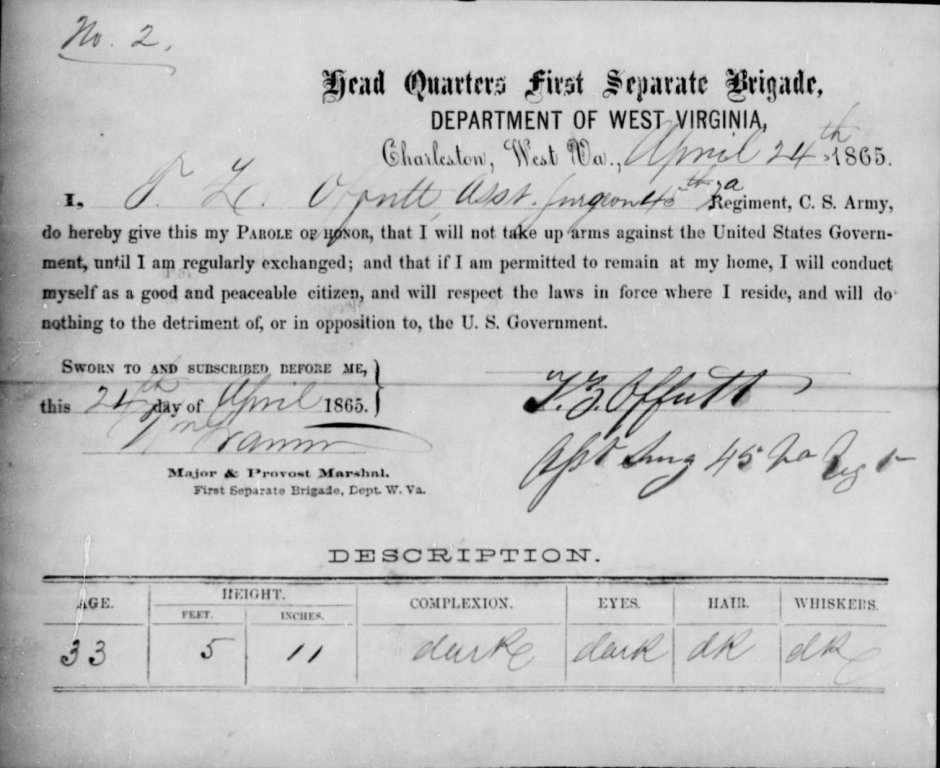 No. 2.
Head Quarters First Separate Brigade,
DEPARTMENT OF WEST VIRGINIA,
Charleston, West Va., April 24th 1865.
I, T. Z. Offutt, Asst. Surgeon 45th Va Regiment, C. S. Army,
do hereby give this my PAROLE OF HONOR, that I will not take up arms against the United States Govern-
ment, until I am regularly exchanged; and that if I am permitted to remain at my home, I will conduct
myself as a good and peaceable citizen, and will respect the laws in force where I reside, and will do
nothing to the detriment of, or in opposition to, the U. S. Government.
SWORN TO AND SUBSCRIBED BEFORE ME,
this 24th day of April 1865.
T. Z. Offutt
Wm
Asst Surg 45 Va Regt
Major & Provost Marshal.
First Separate Brigade, Dept. W. Va.
DESCRIPTION.
AGE. HEIGHT. COMPLEXION. EYES. HAIR. WHISKERS.
FEET. INCHES.
33 5 11 dark dark dk dk